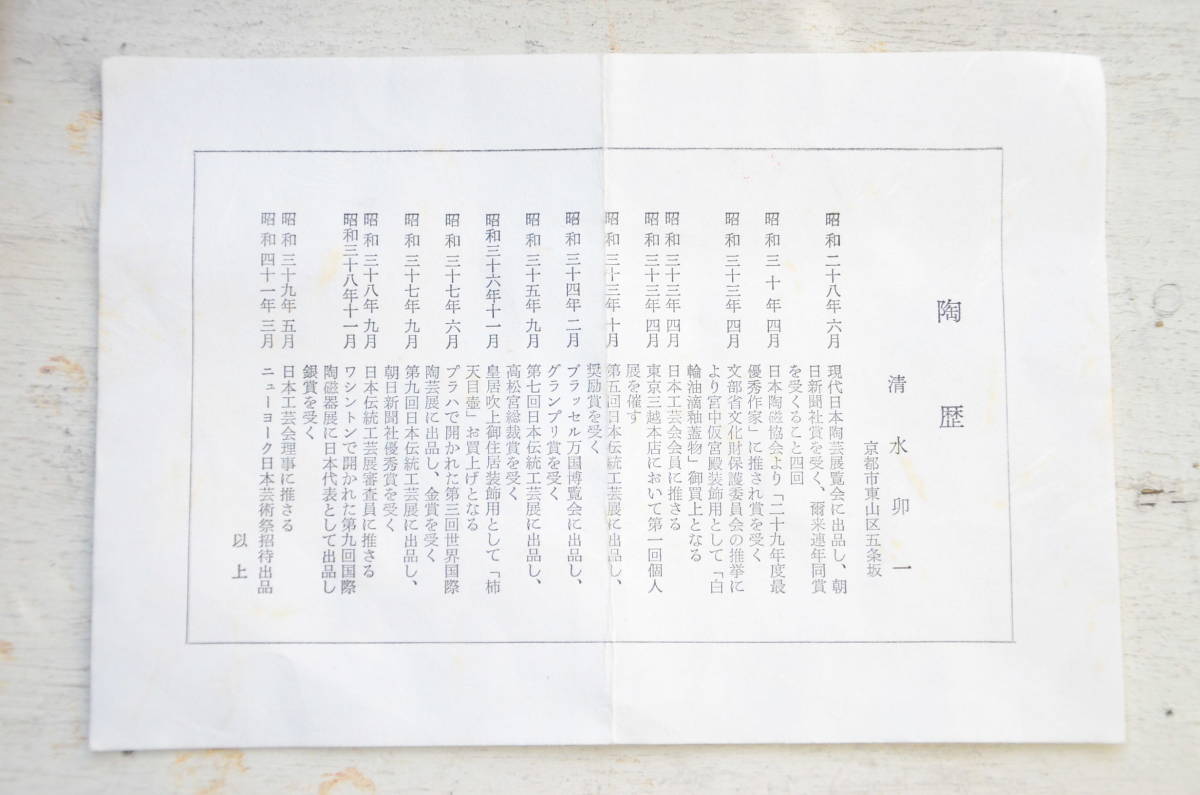 陶歴
京都市東山区五条坂
清水卯一
昭和二十八年六月 現代日本陶芸展覧会に出品し、朝
日新聞社賞を受く、爾来連年同賞
を受くること四回
昭和三十年四月 日本陶磁協会より「二十九年度最
優秀作家」に推され賞を受く
昭和三十三年四月 文部省文化財保護委員会の推挙に
より宮中仮宮殿装飾用として「白
輪油滴釉蓋物」御買上となる
昭和三十三年四月 日本工芸会会員に推さる
昭和三十三年四月 東京三越本店において第一回個人
展を催す
昭和三十三年十月 第五回日本伝統工芸展に出品し、
奨励賞を受く
昭和三十四年二月 ブラッセル万国博覧会に出品し、
グランプリ賞を受く
昭和三十五年九月 第七回日本伝統工芸展に出品し、
高松宮総裁賞を受く
昭和三十六年十一月 皇居吹上御住居装飾用として「柿
天目壺」お買上げとなる
昭和三十七年六月 プラハで開かれた第三回世界国際
陶芸展に出品し、金賞を受く
昭和三十七年九月 第九回日本伝統工芸展に出品し、
朝日新聞社優秀賞を受く
昭和三十八年九月 日本伝統工芸展審査員に推さる
昭和三十八年十一月 ワシントンで開かれた第九回国際
陶磁器展に日本代表として出品し
銀賞を受く
昭和三十九年五月 日本工芸会理事に推さる
昭和四十一年三月 ニューヨーク日本芸術祭招待出品
以上